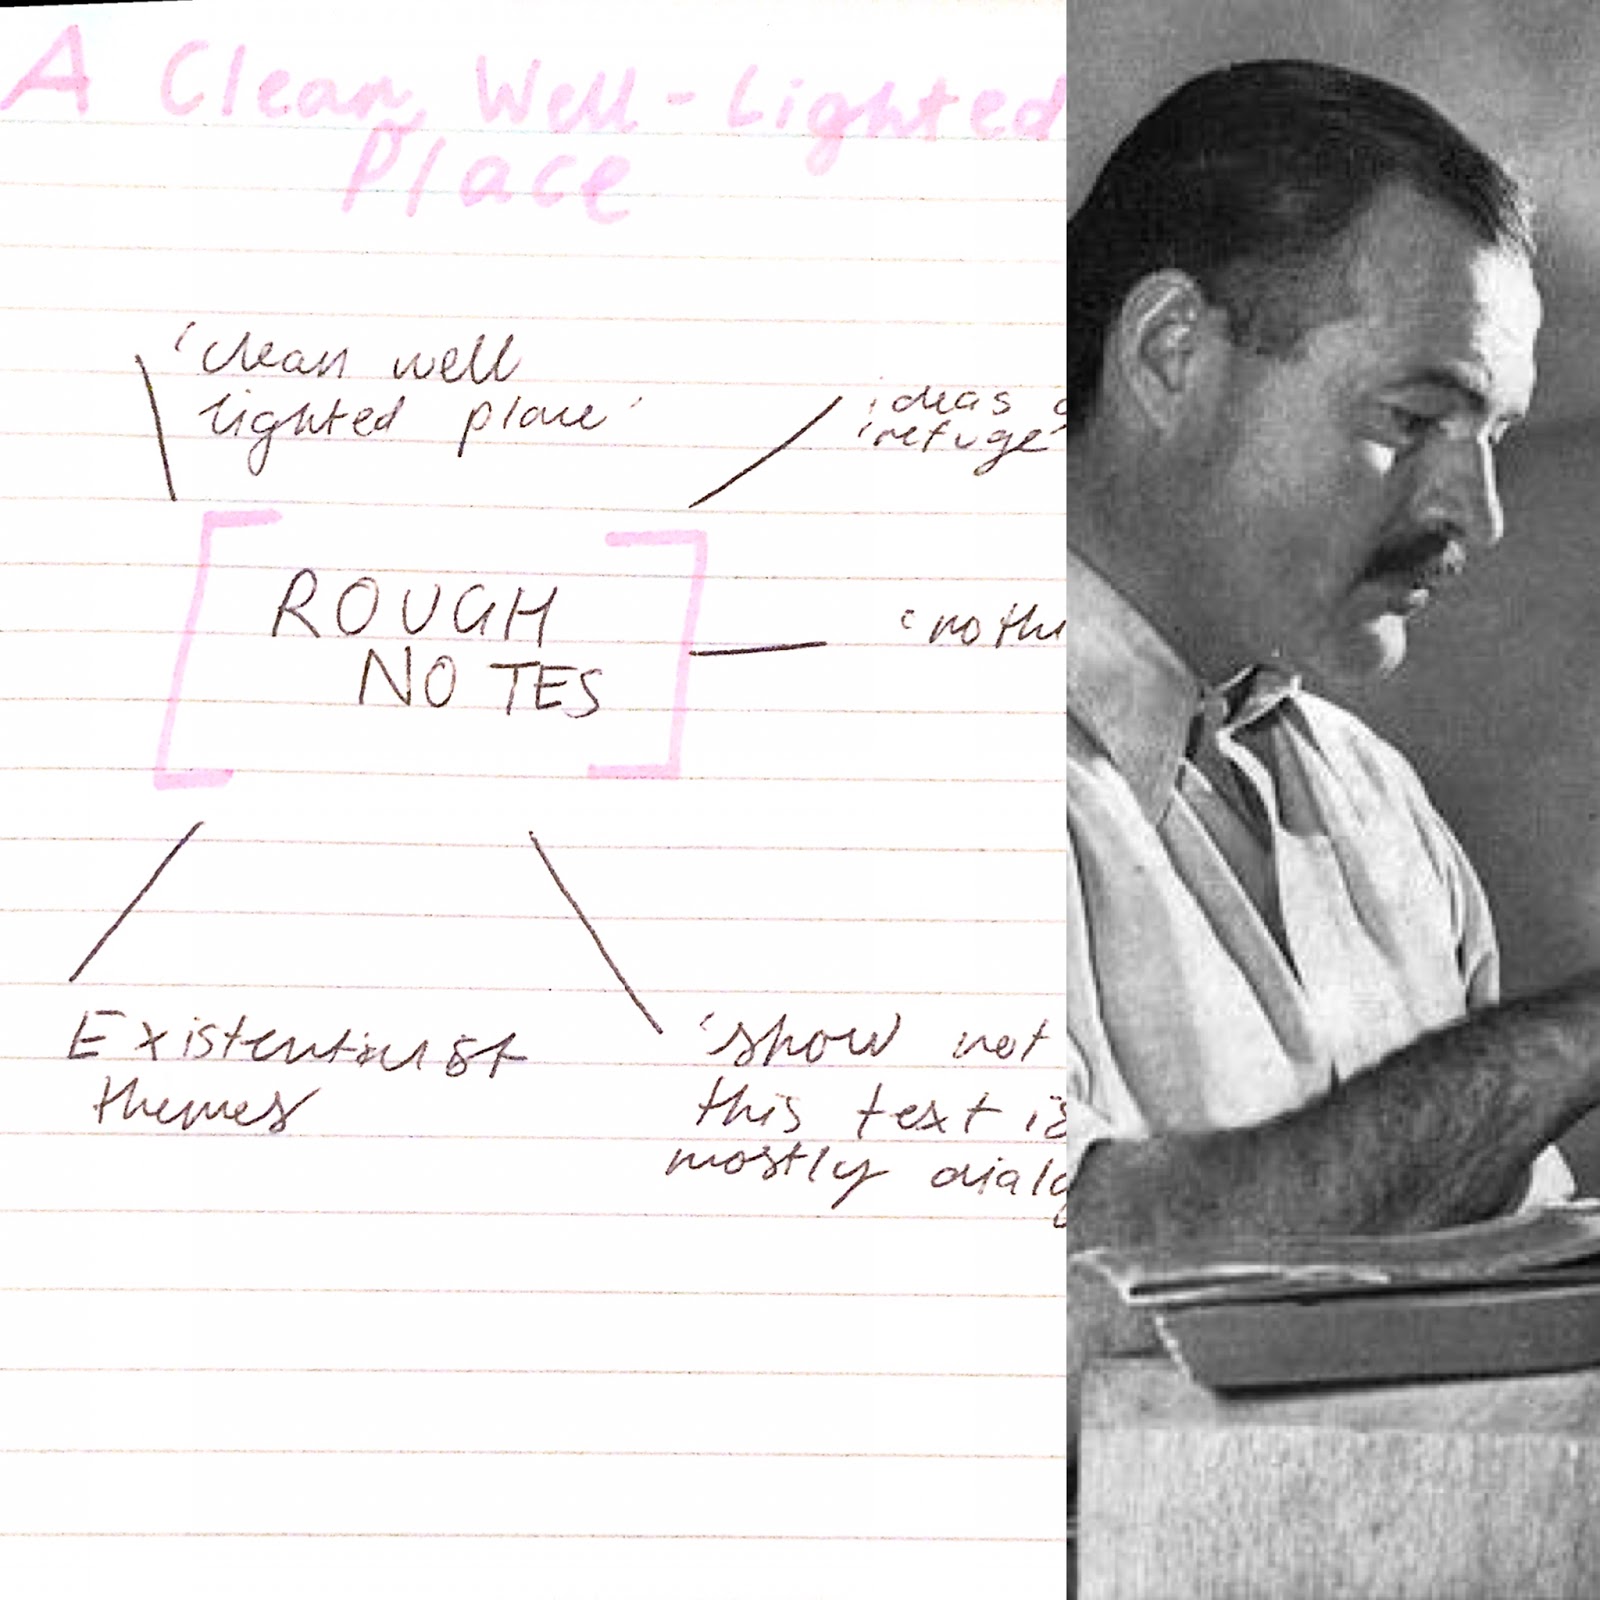 A Clean, Well-Lighted
Place
'clean well
lighted place'
ideas
'refuge'
ROUGH
NOTES
Existentialist
themes
'show not
this text is
mostly